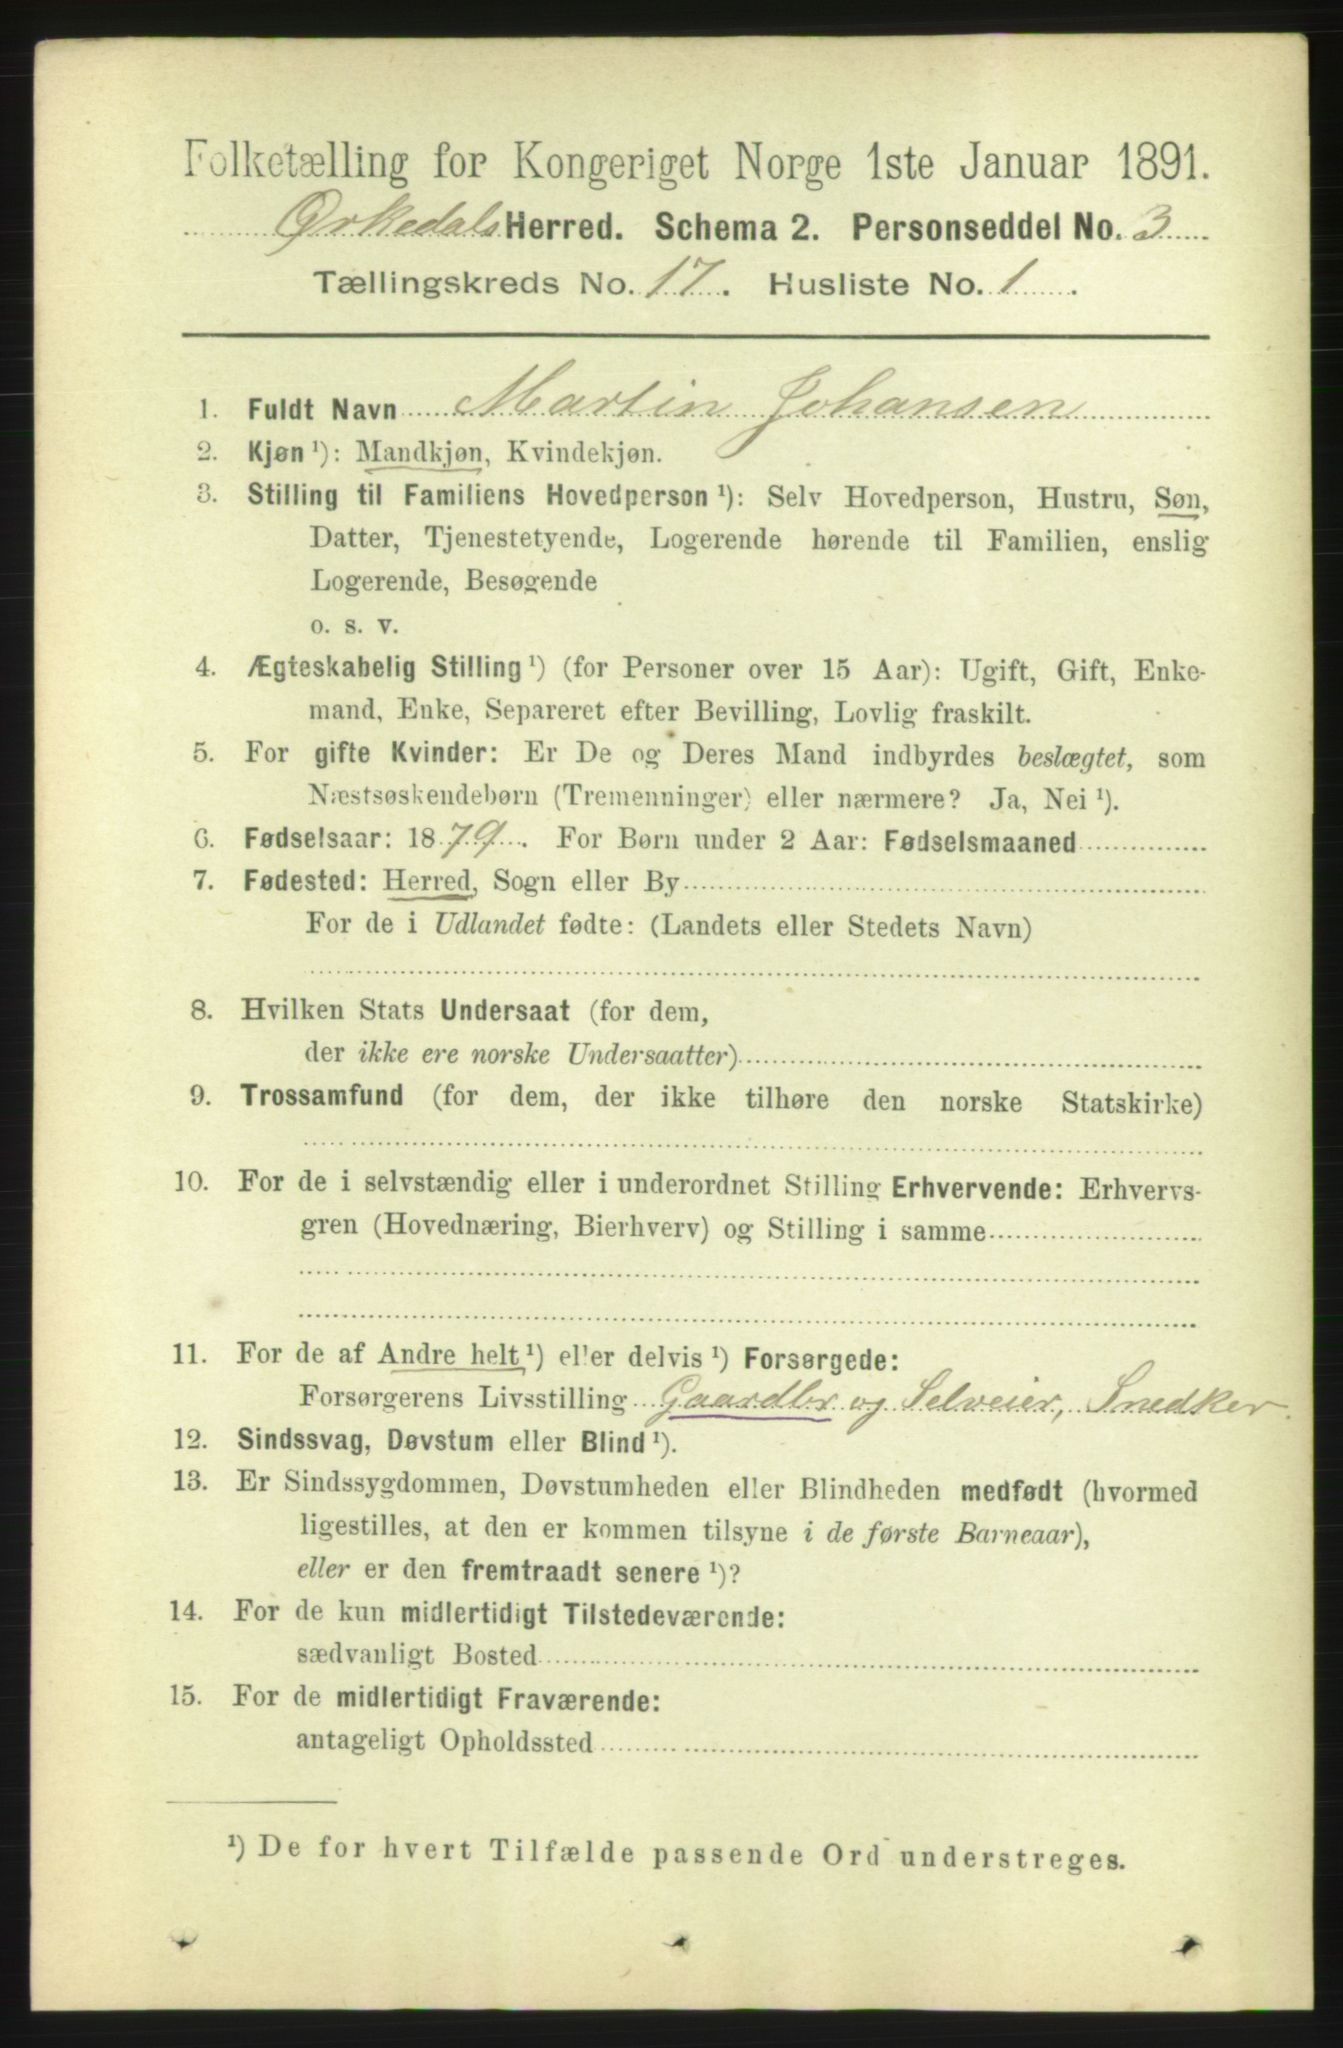 Folketælling for Kongeriget Norge 1ste Januar 1891.
Ørkedals Herred. Schema 2. Personseddel No. 3
Tællingskreds No. 17. Husliste No. 1.
1. Fuldt Navn Martin Johansen
2. Kjøn ¹): Mandkjøn, Kvindekjøn.
3. Stilling til Familiens Hovedperson ¹): Selv Hovedperson, Hustru, Søn,
Datter, Tjenestetyende, Logerende hørende til Familien, enslig
Logerende, Besøgende
o. s. v.
4. Ægteskabelig Stilling ¹) (for Personer over 15 Aar): Ugift, Gift, Enke-
mand, Enke, Separeret efter Bevilling, Lovlig fraskilt.
5. For gifte Kvinder: Er De og Deres Mand indbyrdes beslægtet, som
Næstsøskendebørn (Tremenninger) eller nærmere? Ja, Nei ¹).
6. Fødselsaar: 1879. For Børn under 2 Aar: Fødselsmaaned
7. Fødested: Herred, Sogn eller By
For de i Udlandet fødte: (Landets eller Stedets Navn)
8. Hvilken Stats Undersaat (for dem,
der ikke ere norske Undersaatter)
9. Trossamfund (for dem, der ikke tilhøre den norske Statskirke)
10. For de i selvstændig eller i underordnet Stilling Erhvervende: Erhvervs-
gren (Hovednæring, Bierhverv) og Stilling i samme
11. For de af Andre helt ¹) eller delvis ¹) Forsørgede:
Forsørgerens Livsstilling Gaardbr og Selveier, Snedker.
12. Sindssvag, Døvstum eller Blind ¹).
13. Er Sindssygdommen, Døvstumheden eller Blindheden medfødt (hvormed
ligestilles, at den er kommen tilsyne i de første Barneaar),
eller er den fremtraadt senere ¹)?
14. For de kun midlertidigt Tilstedeværende:
sædvanligt Bosted
15. For de midlertidigt Fraværende:
antageligt Opholdssted
¹) De for hvert Tilfælde passende Ord understreges.